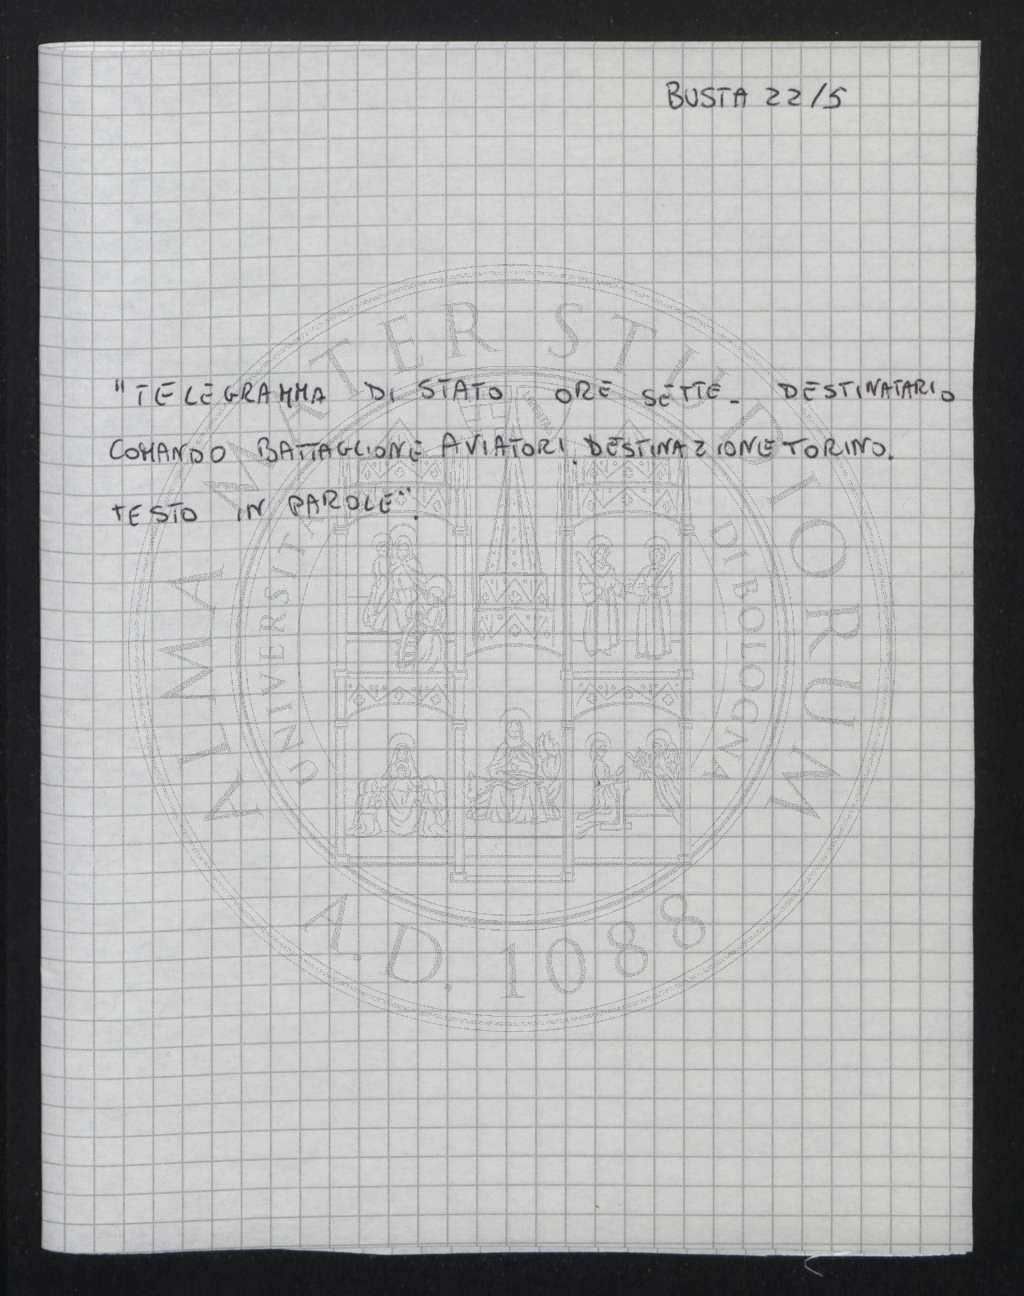 BUSTA 22/5
"TELEGRAMMA DI STATO ORE SETTE - DESTINATARIO
COMANDO BATTAGLIONE AVIATORI. DESTINAZIONE TORINO.
TESTO IN PAROLE".
ALMA MATER STUDIORUM
UNIVERSITÀ DI BOLOGNA
A.D. 1088